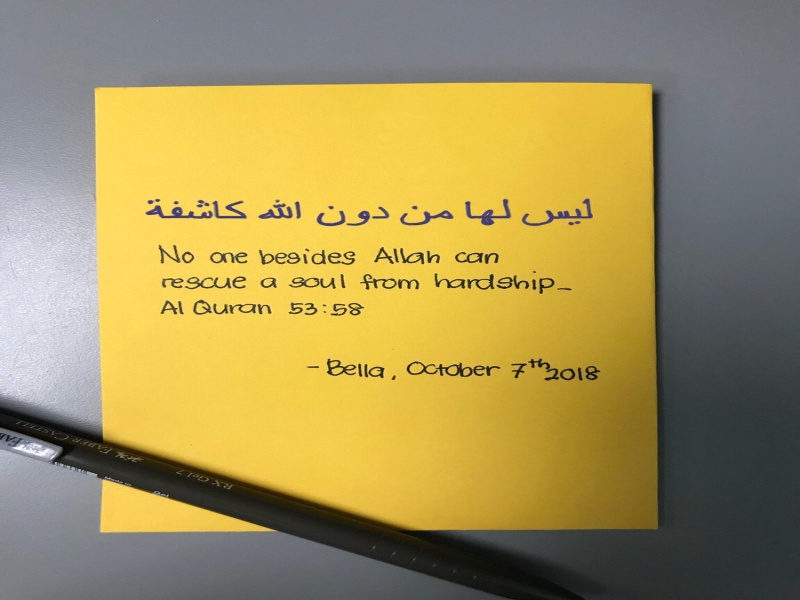 ليس لها من دون الله كاشفة
No one besides Allah can
rescue a soul from hardship_
Al Quran 53:58
- Bella, October 7th 2018
FABER-CASTELL
RX Gel 7